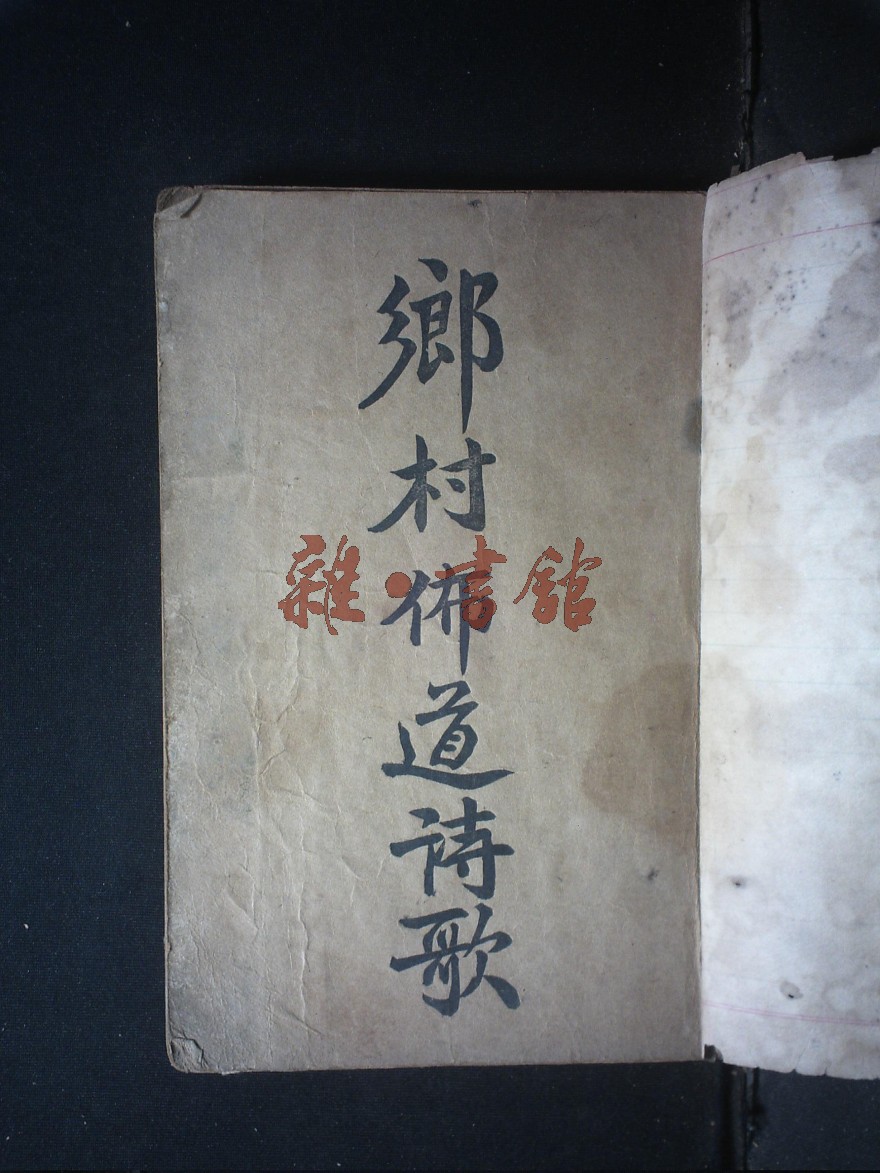 鄉村佈道詩歌
雜·書館